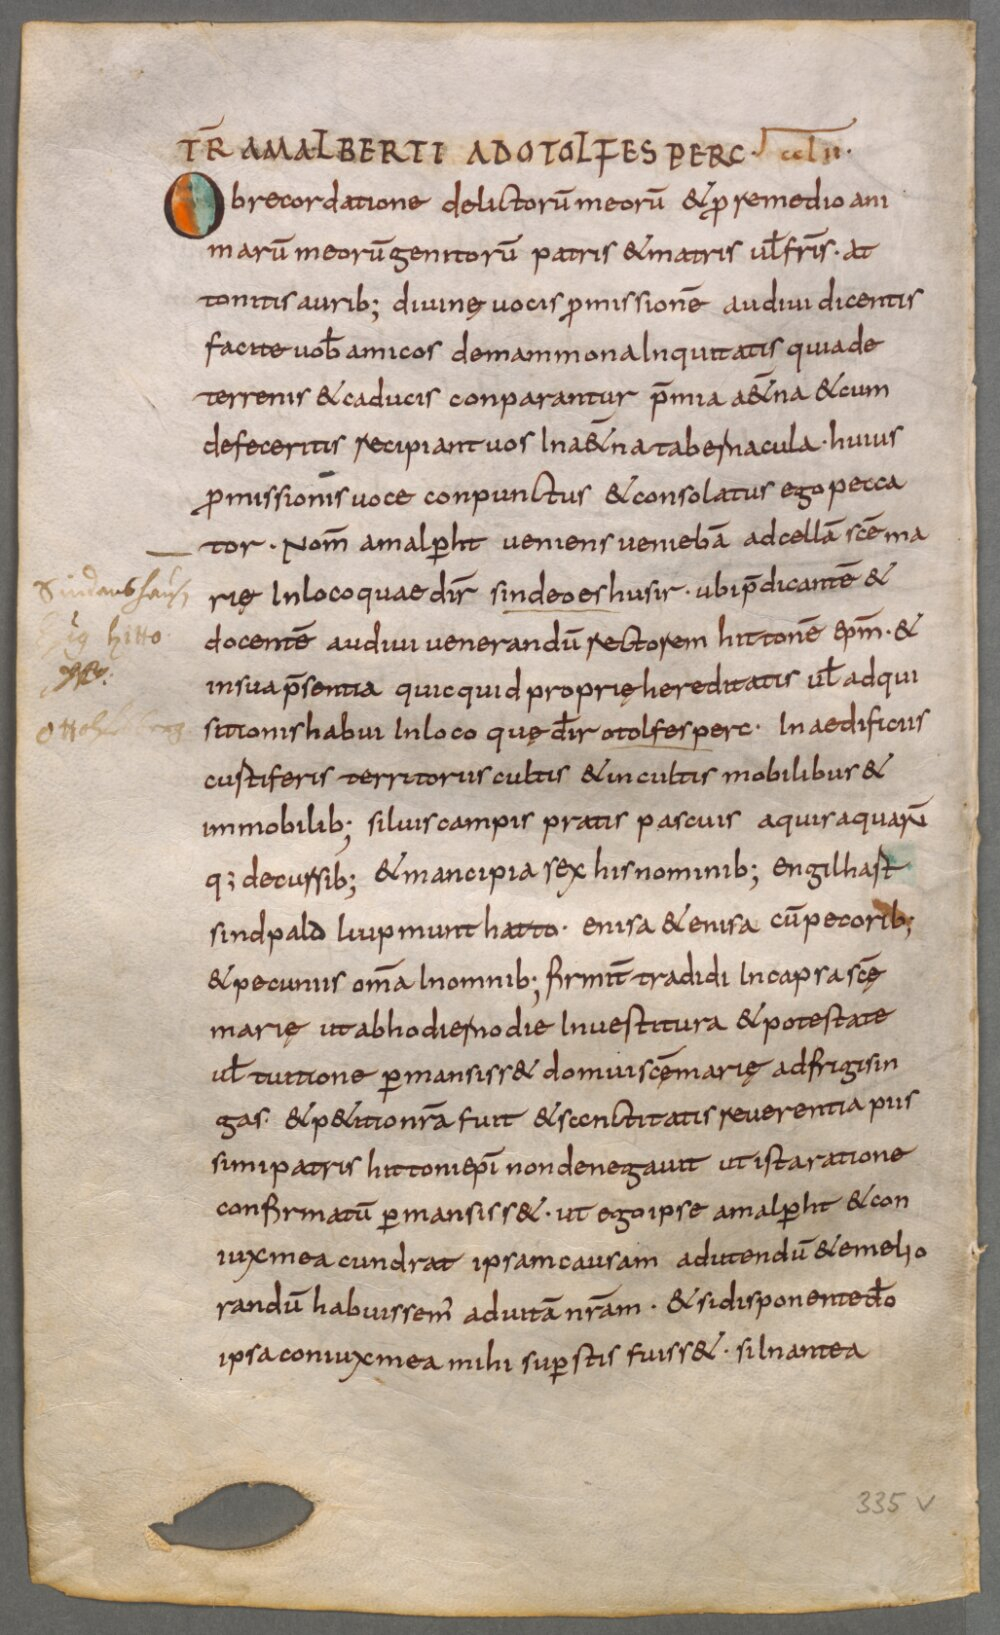 TR̄ AMALBERTI ADOTOLFES PERC · ccln ·
Obrecordatione delictorū meorū & ꝓ remedio ani
marū meorū genitorū patris & matris ul̄ fr̄is · at
tonitis aurib; diuinę uocis ꝓmissionē audiui dicentis
facite uob̄ amicos demammona Inquitatis quia de
terrenis & caducis conparantur p̄mia a&̄na & cum
defeceritis recipiant uos Ina&̄na tabernacula · huius
ꝓmissionis uoce conpunctus & consolatus ego pecca
tor · Nom̄ amalꝑht ueniens ueniebā ad cellā sc̄e ma
rię Inloco quae dir̄ sindeoeshusir · ubi p̄dicantē &
docentē audiui uenerandū rectorem hittonē ep̄m · &
insua p̄sentia quicquid proprię hereditatis ul̄ adqui
sitionis habui Inloco quę dir̄ otolfesperc · In aedificiis
custiferis territoriis cultis & incultis mobilibus &
immobilib; siluis campis pratis pascuis aquir aquarū
q; decursib; & mancipia sex his nominib; engilhast
sindpald liupmunt hatto · enisa & enisa cū pecorib;
& pecuniis om̄a Inomnib; firmit̄ tradidi Incapsa sc̄ę
marię ut ab hodierno die Inuestitura & potestate
ul̄ tuitione ꝑmansiss& domui sc̄ę marię ad frigisin
gas · & p&itio nr̄a fuit & sccnctitatis reuerentia piis
simi patris hittoni ep̄i non denegauit ut ista ratione
confirmatū ꝑmansiss& · ut ego ipse amalꝑht & con
iux mea cundrat ipsam causam ad utendū & emelio
randū habuissem̄ ad uitā nr̄am · & si disponente d̄o
ipsa coniux mea mihi suꝑstis fuiss& · si Inantea
Sindenshaus
hitto
335 v